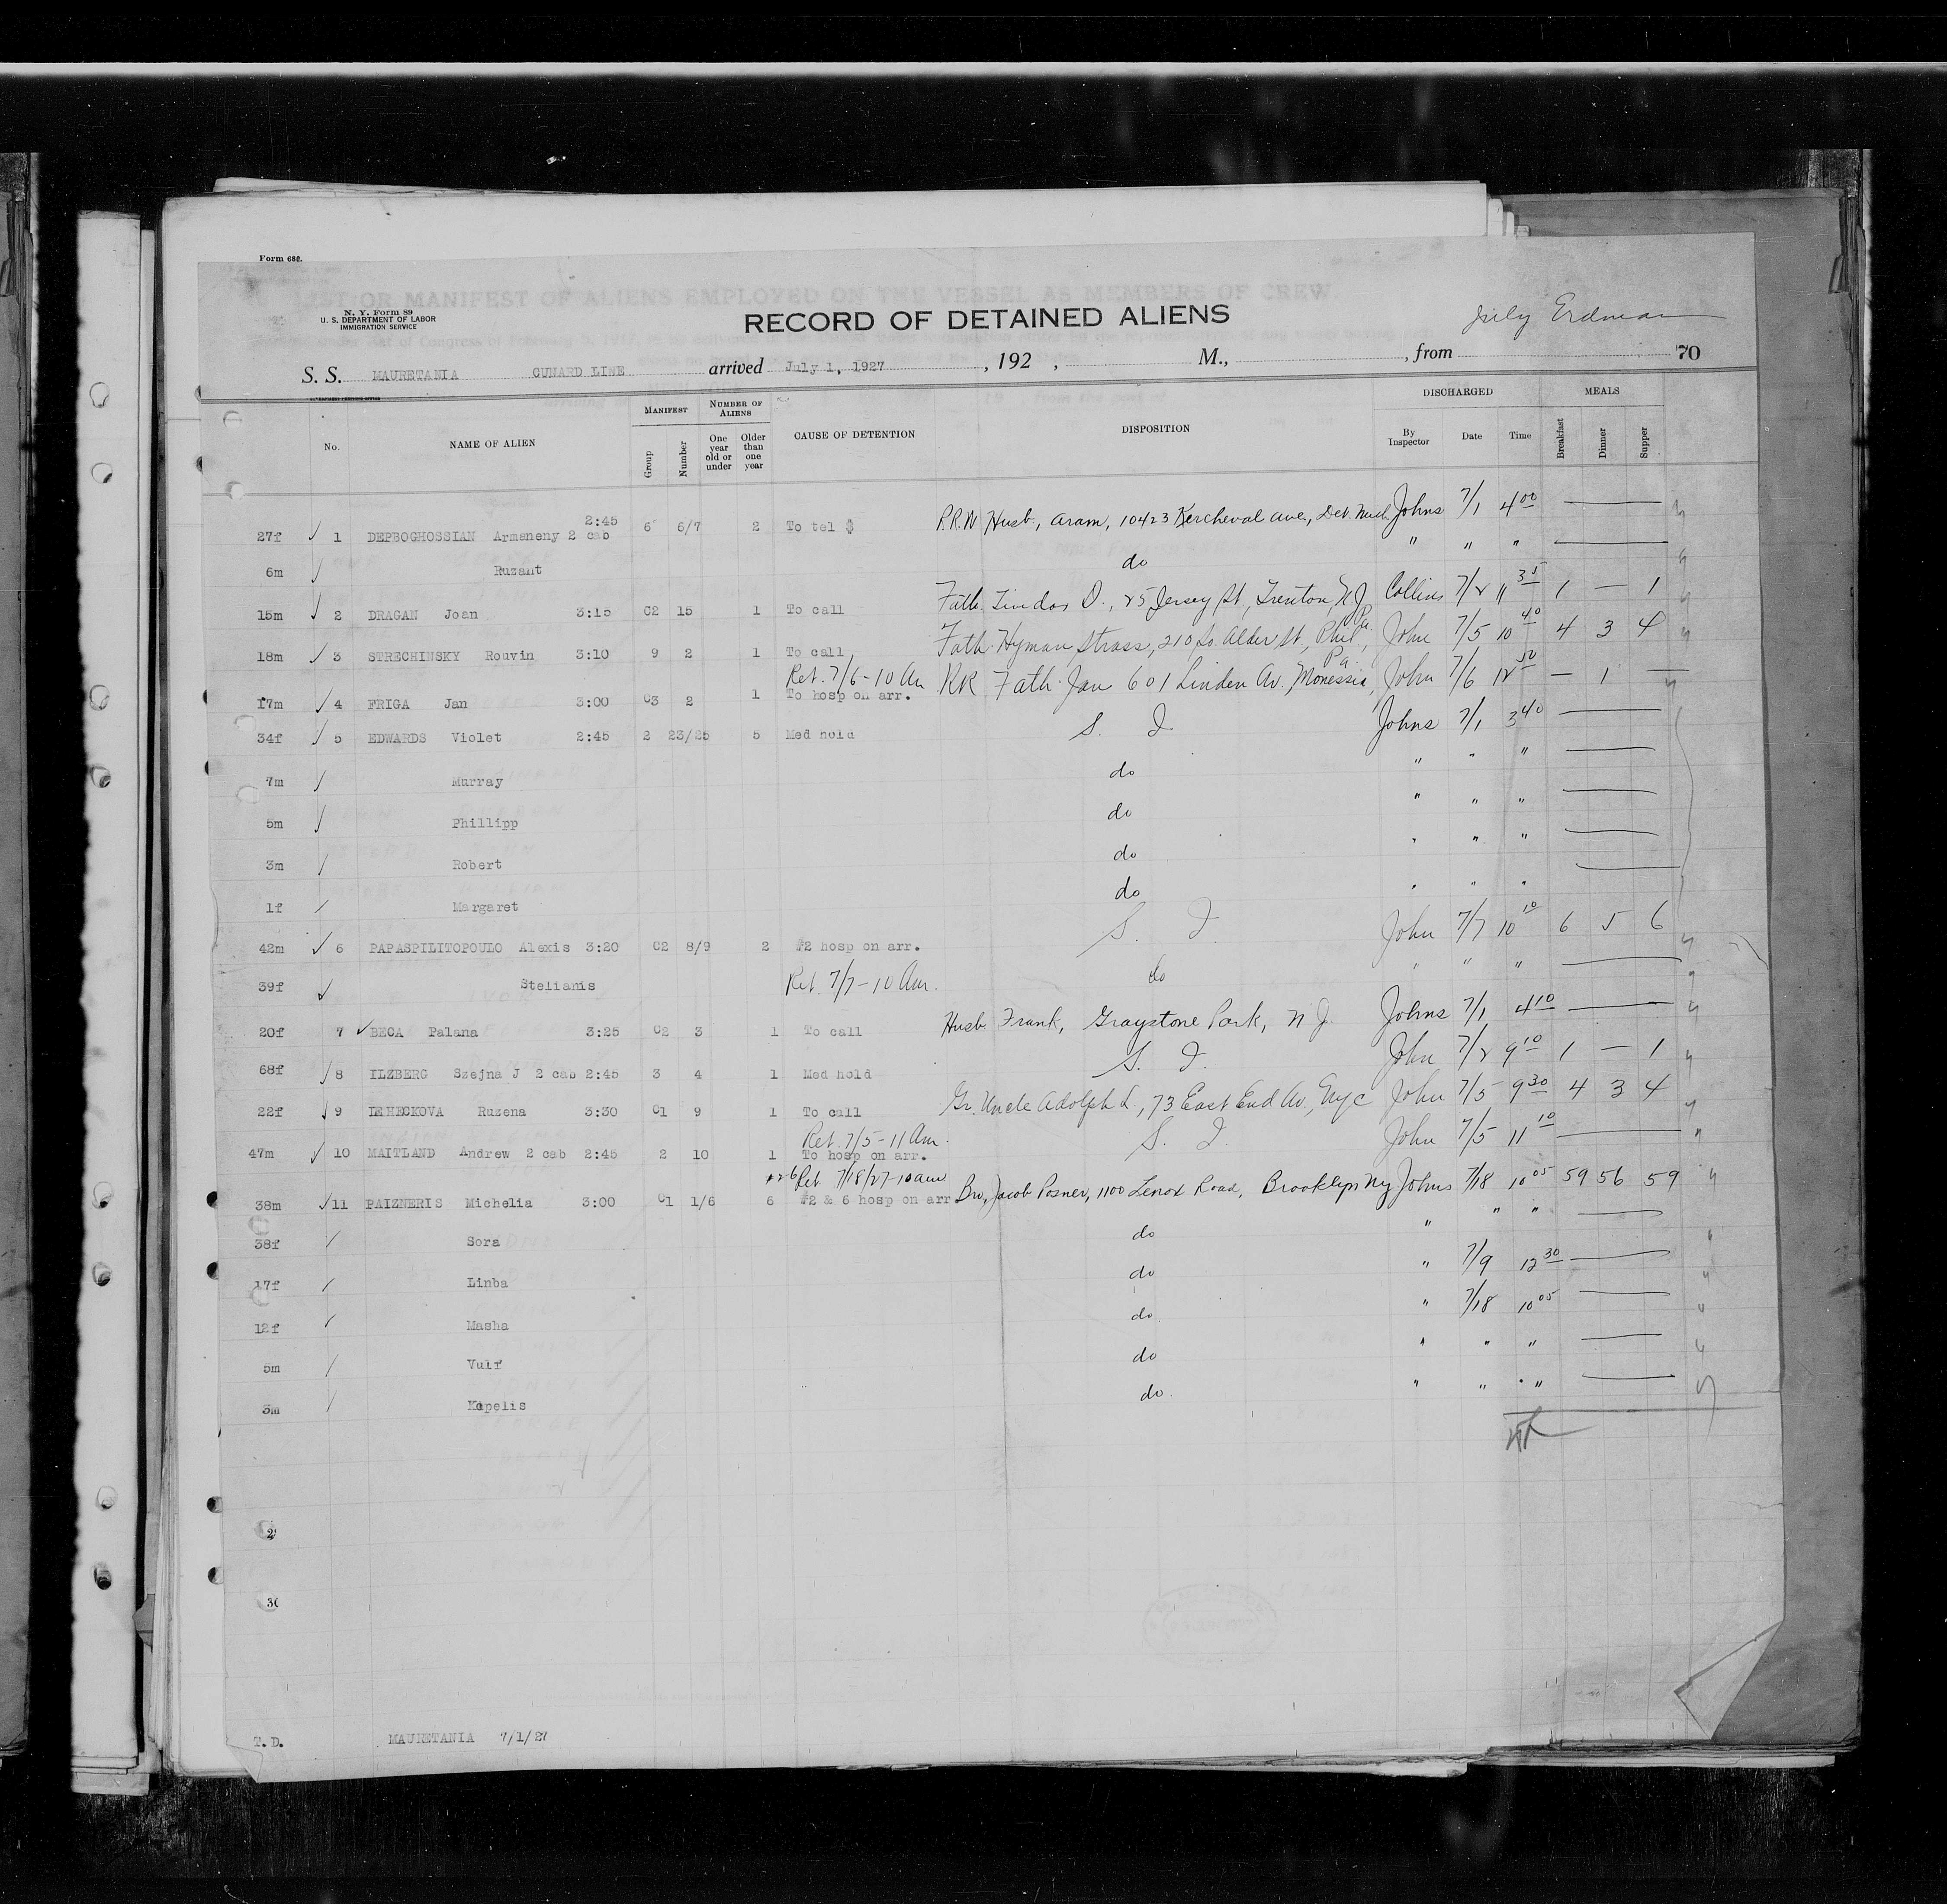 Form 689.
N. Y. Form 89
U. S. DEPARTMENT OF LABOR
IMMIGRATION SERVICE
LIST OR MANIFEST OF ALIENS EMPLOYED ON THE VESSEL AS MEMBERS OF CREW.
RECORD OF DETAINED ALIENS
Erdman
S. S. MAURETANIA CUNARD LINE arrived July 1, 1927, 192 , M., , from 70
No. NAME OF ALIEN MANIFEST Group Number NUMBER OF ALIENS One year old or under Older than one year CAUSE OF DETENTION DISPOSITION DISCHARGED By Inspector Date Time MEALS Breakfast Dinner Supper
27f 1 DEPBOGHOSSIAN Armaneny 2 cab 2:45 6 6/7 2 To tel $ P.R.W Husb, Aram, 10423 Kercheval ave, Det Mich Johns 7/1 4 00 —
6m Ruzant do " " " —
15m 2 DRAGAN Joan 3:15 C2 15 1 To call Fath. D., 25 Jersey St, Trenton, NJ Collins 7/2 11 35 1 — 1
18m 3 STRECHINSKY Rouvin 3:10 9 2 1 To call Fath. Hyman Strass, 210 So. Alder st, Phil, Pa. John 7/5 10 40 4 3 4
17m 4 FRIGA Jan 3:00 C3 2 1 Ret. 7/6-10 Am To hosp on arr. RR Fath. Jan 601 Linden Av. Monessia, Pa. John 7/6 12 50 — 1 —
34f 5 EDWARDS Violet 2:45 2 23/25 5 Med hold S. I. Johns 7/1 3 40 —
7m Murray do " " " —
5m Phillipp do " " " —
3m Robert do " " " —
1f Margaret do " " " —
42m 6 PAPASPILITOPOULO Alexis 3:20 C2 8/9 2 #2 hosp on arr. S. I. John 7/7 10 10 6 5 6
39f Stelianis Ret. 7/7-10 Am. do " " " —
20f 7 BECA Palana 3:25 C2 3 1 To call Husb. Frank, Graystone Park, N J. Johns 7/1 4 10 —
68f 8 ILZBERG Szejna J 2 cab 2:45 3 4 1 Med hold S. I. John 7/2 9 10 1 — 1
22f 9 LEHECKOVA Ruzena 3:30 C1 9 1 To call Gr. Uncle Adolph L., 73 East End Av., Nyc John 7/5 9 30 4 3 4
47m 10 MAITLAND Andrew 2 cab 2:45 2 10 1 Ret. 7/5-11 Am. To hosp on arr. S. I. John 7/5 11 10 —
38m 11 PAIZNERIS Michelia 3:00 C1 1/6 6 #2-6 Ret 7/18/27-10am #2 & 6 hosp on arr Bro, Jacob Posner, 1100 Lenox Road, Brooklyn Ny Johns 7/18 10 05 59 56 59
38f Sora do " " " —
17f Linba do " 7/9 12 30 —
12f Masha do. " 7/18 10 05 —
5m Vulf do " " " —
3m Kopelis do. " " " —
T. D. MAURETANIA 7/1/27